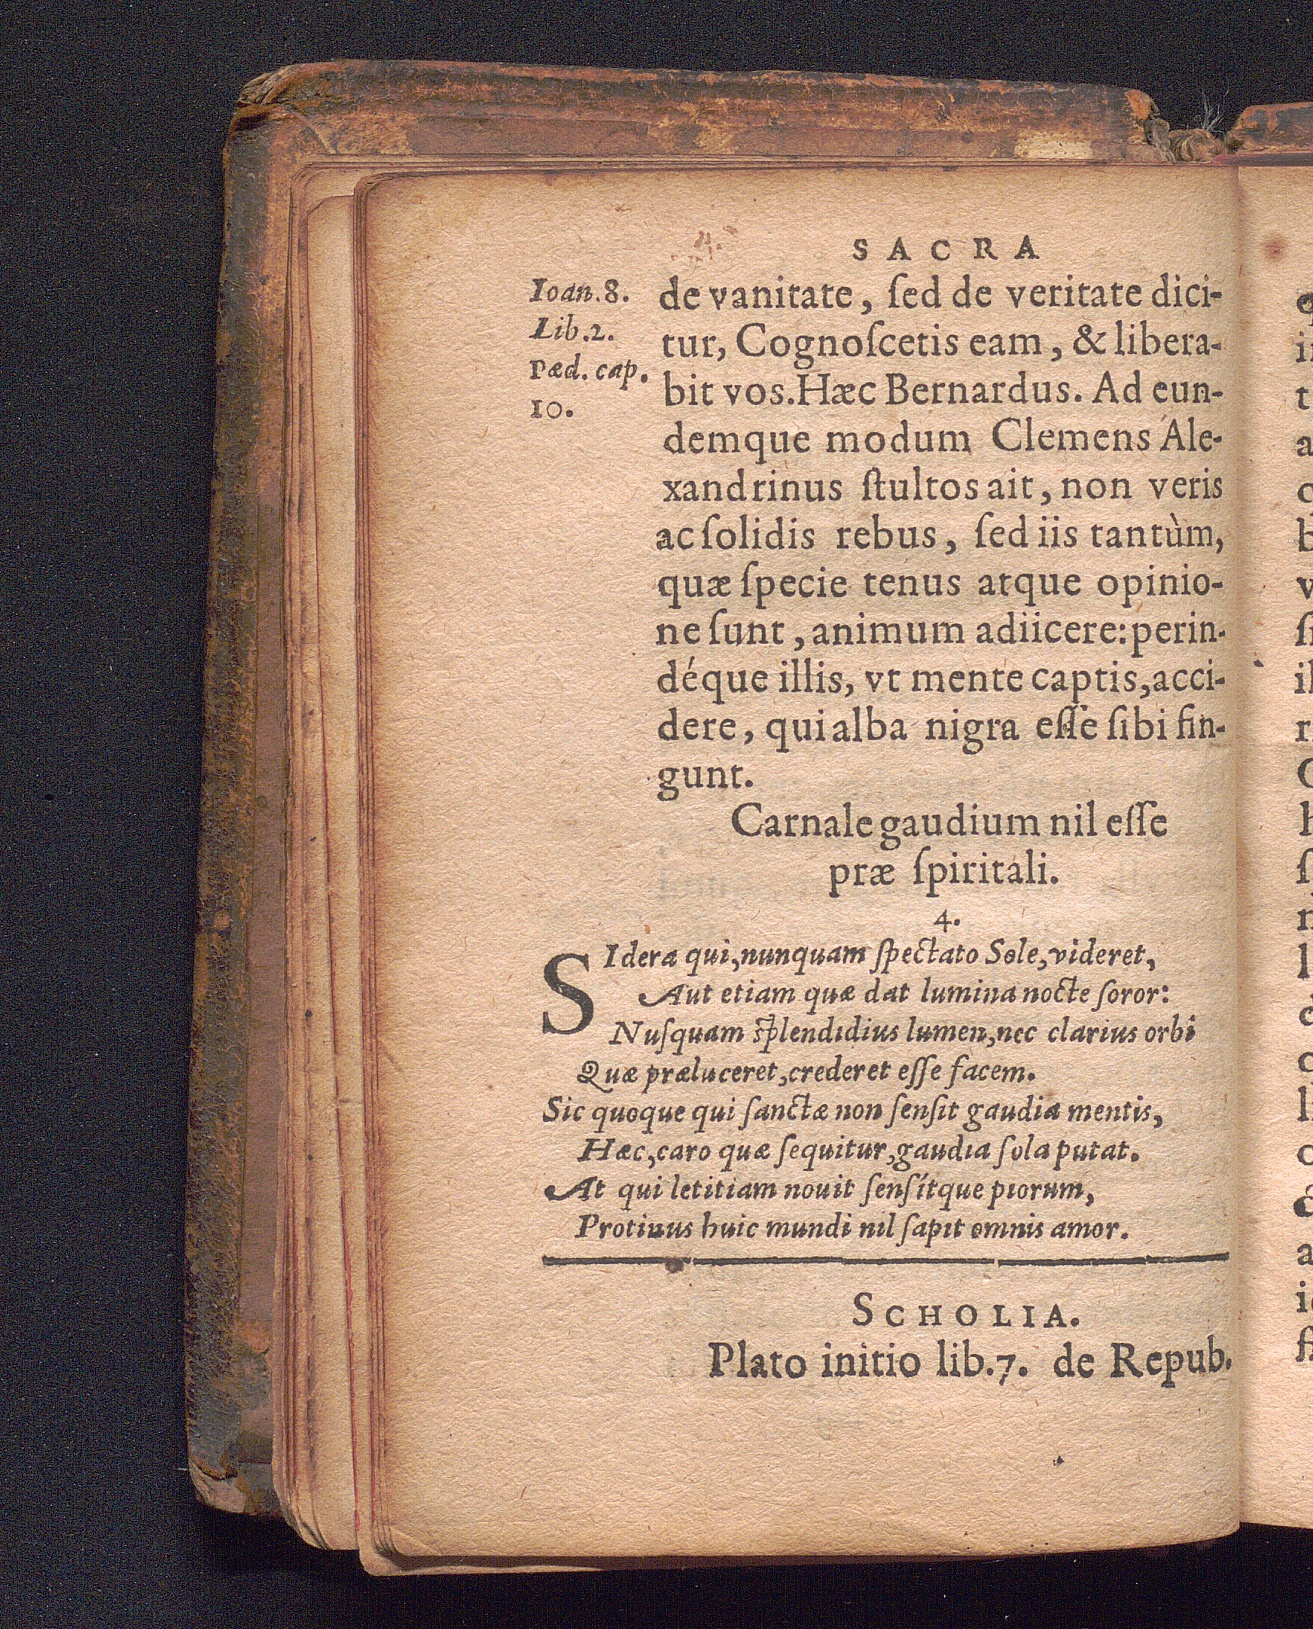 SACRA
Ioan.8.
Lib.2.
Pæd. cap.
10.
de vanitate, ſed de veritate dici-
tur, Cognoſcetis eam, & libera-
bit vos. Hæc Bernardus. Ad eun-
demque modum Clemens Ale-
xandrinus ſtultos ait, non veris
ac ſolidis rebus, ſed iis tantùm,
quæ ſpecie tenus atque opinio-
ne ſunt, animum adiicere: perin-
déque illis, vt mente captis, acci-
dere, qui alba nigra eſſe ſibi fin-
gunt.
Carnale gaudium nil eſſe
præ ſpiritali.
4.
SIdera qui, nunquam ſpectato Sole, videret,
Aut etiam quæ dat lumina nocte ſoror:
Nuſquam ſplendidius lumen, nec clarius orbi
Quæ præluceret, crederet eſſe facem.
Sic quoque qui ſanctæ non ſenſit gaudia mentis,
Hæc, caro quæ ſequitur, gaudia ſola putat.
At qui letitiam nouit ſenſítque piorum,
Protinus huic mundi nil ſapit omnis amor.
SCHOLIA.
Plato initio lib.7. de Repub.